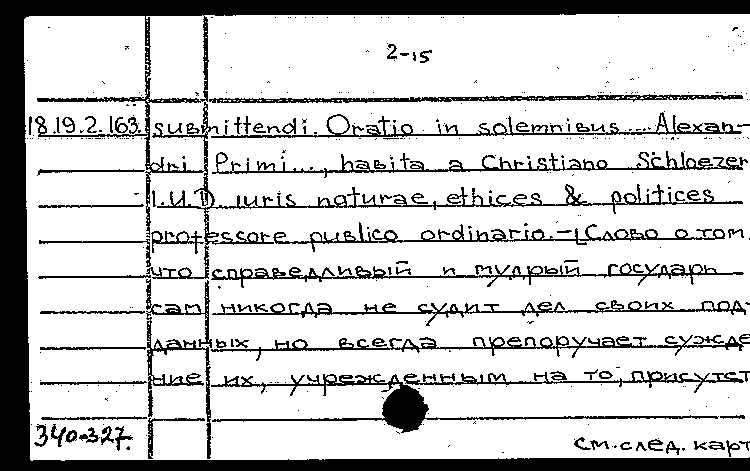 2-15
18.19.2.163. submittendi. Oratio in solemnibus... Alexan-
dri Primi..., habita a Christiano Schloezer
I.U.D iuris naturae, ethices & politices
professore publico ordinario.-[Слово о том,
что справедливый и мудрый государь
сам никогда не судит дел своих под-
данных, но всегда препоручает сужде
ние их, учрежденным на то, присутст
340-327.
см. след. карт